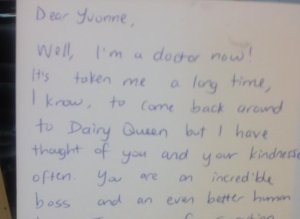 Dear Yvonne,
Well, I'm a doctor now!
It's taken me a long time,
I know, to come back around
to Dairy Queen but I have
thought of you and your kindness
often. You are an incredible
boss and an even better human